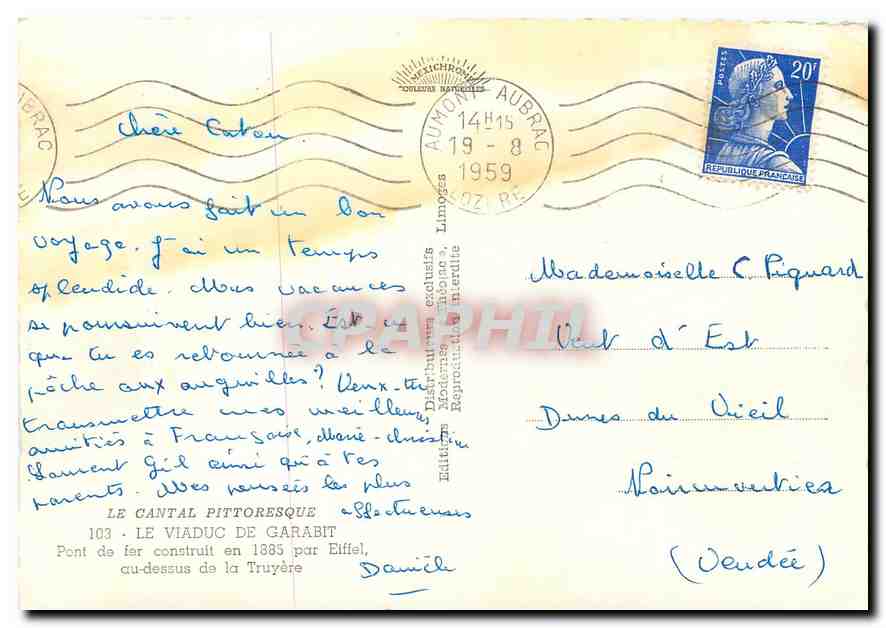 MEXICHROME
"COULEURS NATURELLES"
AUMONT AUBRAC
14H15
19 - 8
1959
LOZERE
UBRAC
POSTES
20F
REPUBLIQUE FRANÇAISE
chère
Nous avons fait un bon
voyage. J'ai un temps
splendide. Mes vacances
se poursuivent bien. Est-ce
que tu es retournée à la
pêche aux anguilles? Veux-tu
transmettre mes meilleures
amitiés à Françoise, Marie-Christine
Laurent Gil ainsi qu'à tes
parents. Mes pensées les plus
affectueuses
Danièle
LE CANTAL PITTORESQUE
103 - LE VIADUC DE GARABIT
Pont de fer construit en 1885 par Eiffel,
au-dessus de la Truyère
Distributeurs exclusifs
Editions Modernes Théojac, Limoges
Reproduction interdite
CPAPHIL
Mademoiselle C. Piquard
Vent d'Est
Dunes du Vieil
(Vendée)